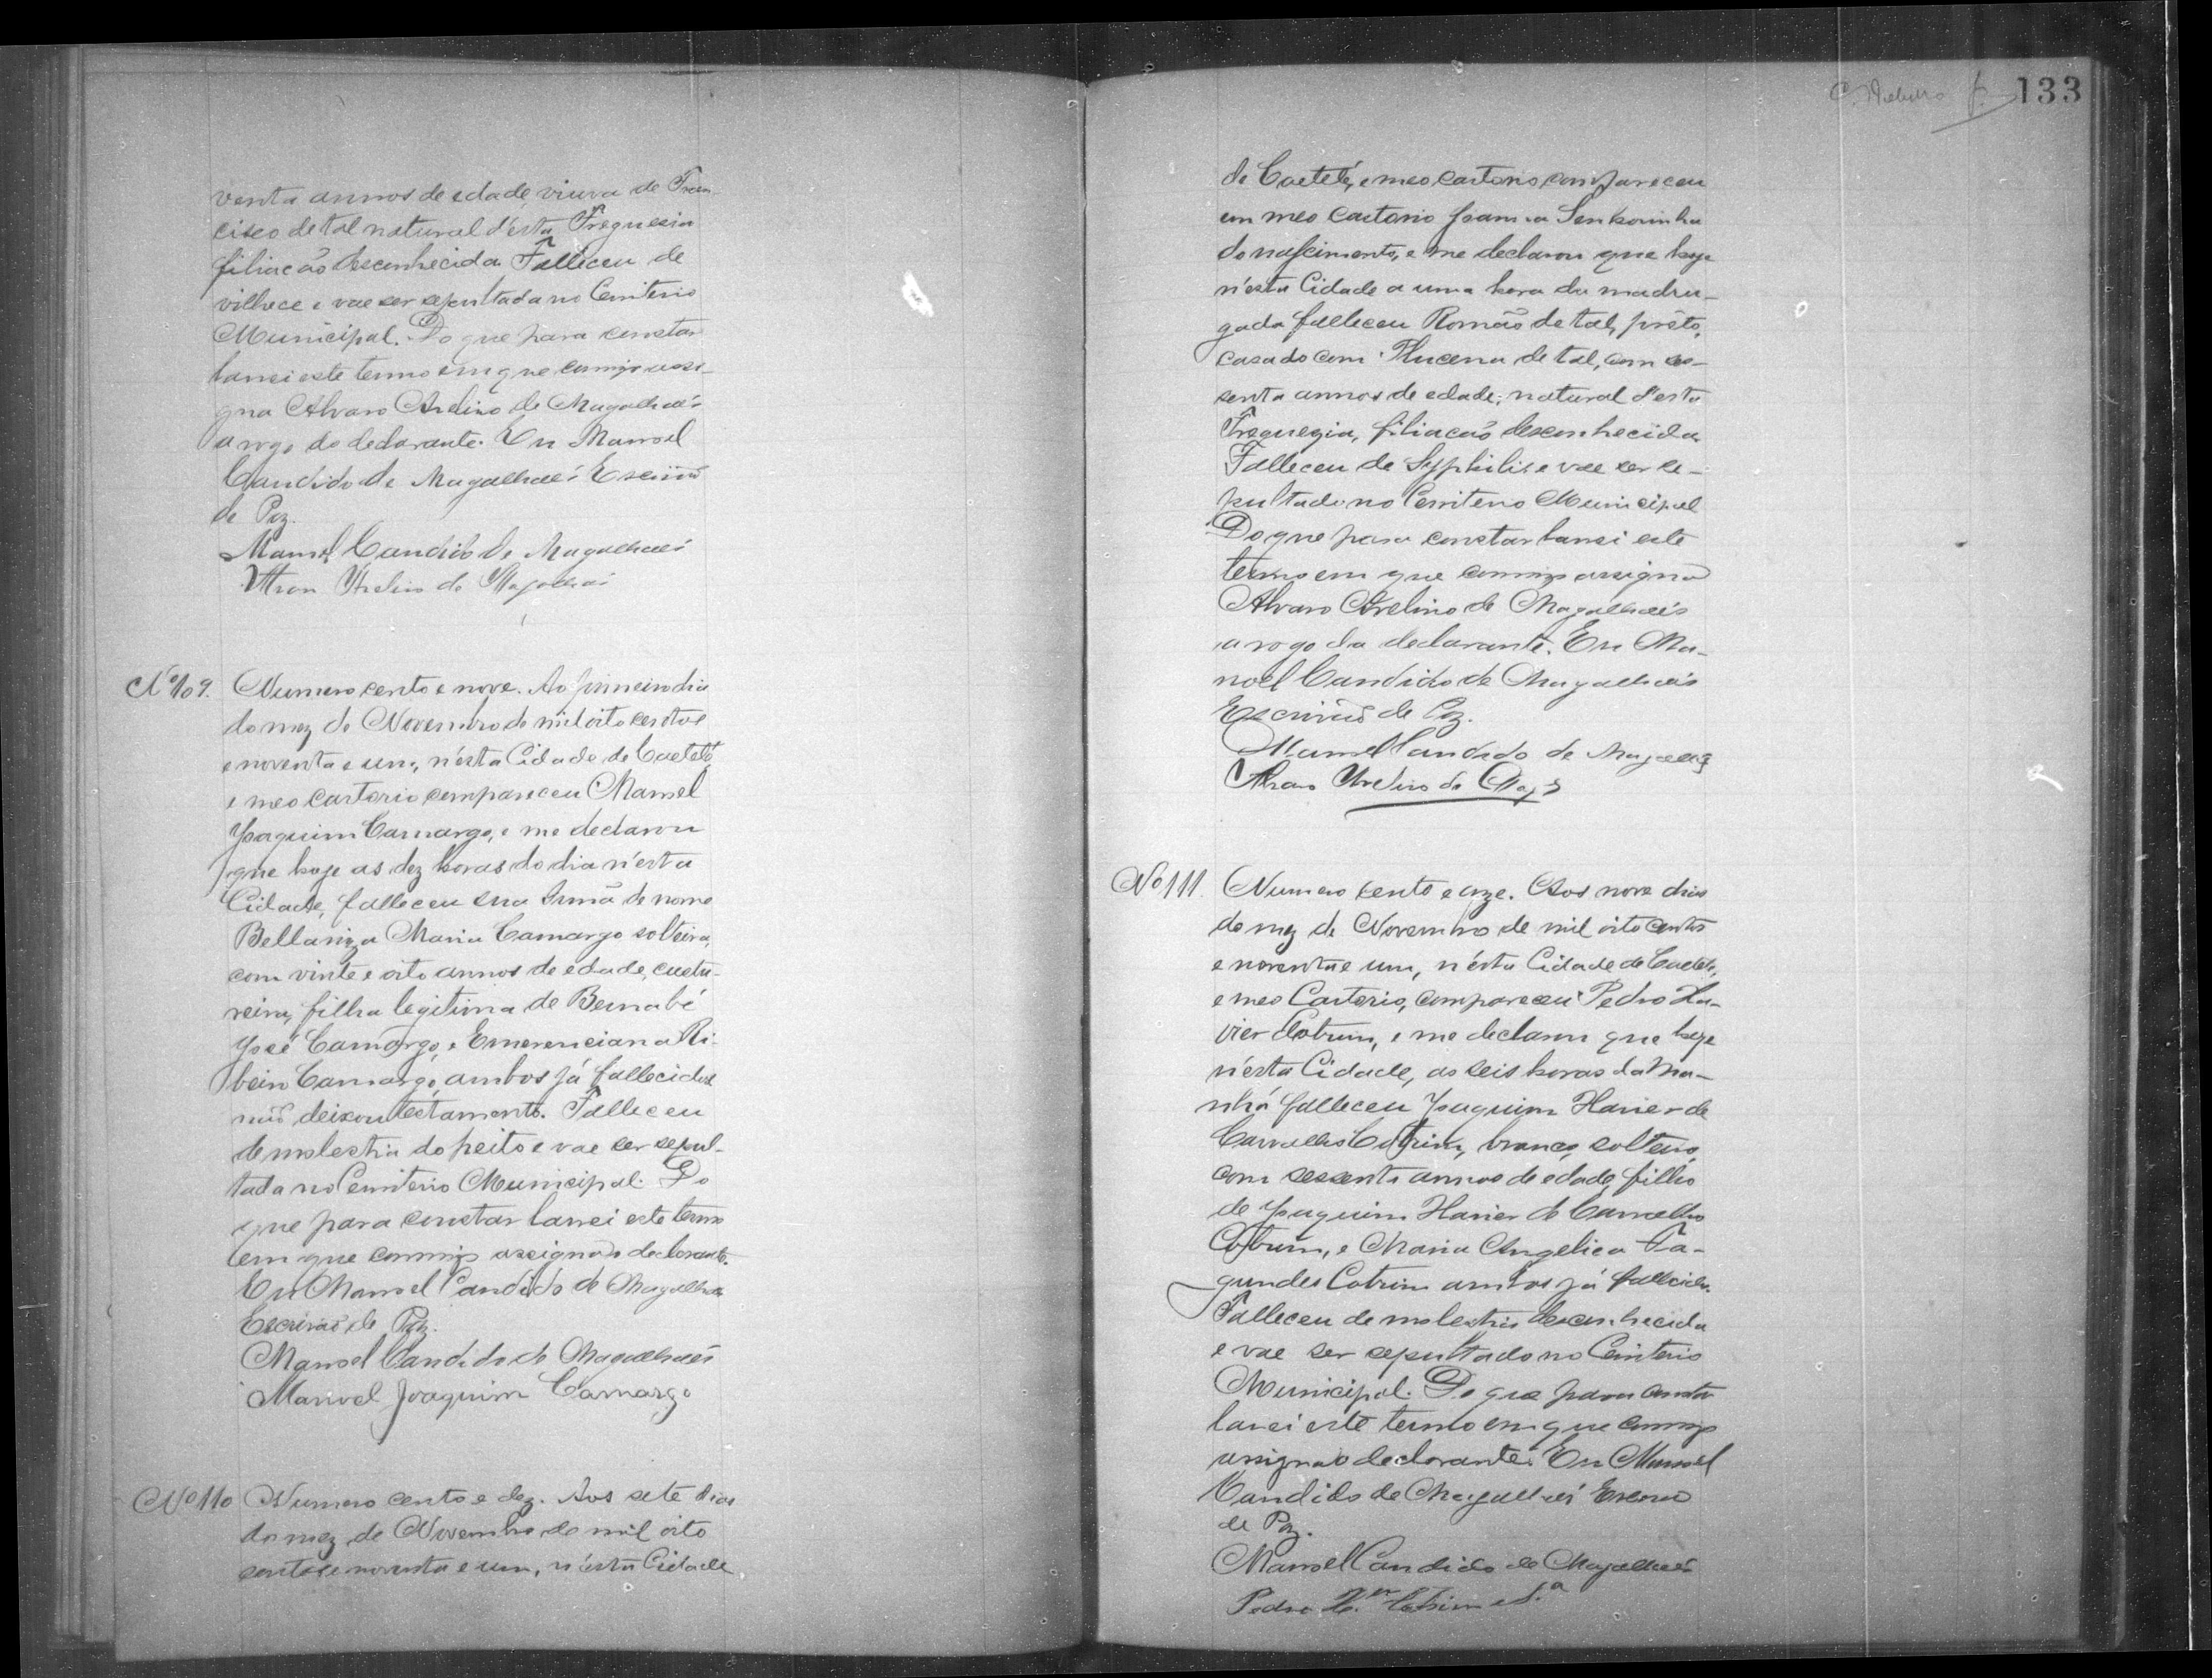 venta annos de edade, viuva de Fran-
cisco de tal natural d'esta Freguesia
filiacão desconhecida Falleceu de
vilhece e vae ser sepultada no Cemiterio
Municipal. Do que para constar
lancei este termo em que comigo assi-
gna Alvaro Avelino de Magalhaẽs
a rogo do declarante. Eu Manoel
Candido de Magalhaẽs Escrivaõ
de Paz.
Manoel Candido de Magalhaẽs
Alvaro Avelino de Magalhaẽs
Nº 109. Numero cento e nove. Ao primeiro dia
do mez de Novembro de mil oito centos
e noventa e um, n'ésta Cidade de Caeteté
e meo cartorio compareceu Manoel
Joaquim Camargo, e me declarou
que hoje as dez horas do dia n'ésta
Cidade, falleceu sua Irmã de nome
Bellaniza Maria Camargo solteira,
com vinte e oito annos de edade, caete-
reira, filha legitima de Bernabé
José Camargo, e Emerenciana Ri-
beiro Camargo, ambos já fallecidos
naõ deixou testamento. Falleceu
de molestia do peito e vae ser sepul-
tada no Cemiterio Municipal. Do
que para constar lancei este termo
em que commigo assigna o declarante.
Eu Manoel Candido de Magalhaẽs
Escrivaõ de Paz.
Manoel Candido de Magalhaẽs
Manoel Joaquim Camargo
Nº 110 Numero cento e dez. Aos sete dias
do mez de Novembro de mil oito
centos e noventa e um, n'ésta Cidade
133
de Caeteté, e meo cartorio compareceu
em meo cartorio Joanna Senhorinha
do nascimento, e me declarou que hoje
n'ésta Cidade a uma hora da madru-
gada falleceu Romão de tal, prêto,
casado com de tal, com ses-
senta annos de edade; natural d'esta
Freguezia, filiacaõ desconhecida
Falleceu de Syphilis e vae ser se-
pultado no Cemiterio Municipal
Do que para constar lancei este
termo em que commigo assigna
Alvaro Avelino de Magalhaẽs
a rogo da declarante. Eu Ma-
noel Candido de Magalhaẽs
Escrivaõ de Paz.
Manoel Candido de Magalhẽs
Alvaro Avelino de Mag.s
Nº 111. Numero cento e onze. Aos nove dias
do mez de Novembro de mil oito centos
e noventa e um, n'ésta Cidade de Caeteté,
e meo Cartorio, compareceu Pedro Xa-
vier Cotrim, e me declarou que hoje
n'ésta Cidade, as seis horas da ma-
nhã falleceu Joaquim Xavier de
Carvalho Cotrim, branco, solteiro,
com sessenta annos de edade, filho
de Joaquim Xavier de Carvalho
Cotrim, e Maria Angelica Fa-
gundes Cotrim ambos já fallecidos.
Falleceu de molestia desconhecida
e vae ser sepultado no Cemiterio
Municipal. Do que para constar
lancei este termo em que commigo
assigna o declarante. Eu Manoel
Candido de Magalhaẽs Escrivaõ
de Paz.
Manoel Candido de Magalhaẽs
Pedro X.er Cotrim e S.a